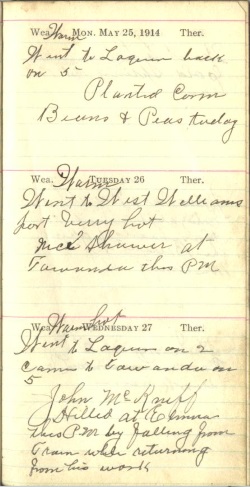 Wea. Warm MON. MAY 25, 1914 Ther.
Went to Laquin back
on 5
Planted Corn
Beans & Peas today
Wea. Warm TUESDAY 26 Ther.
Went to West Williams
port Very hot
Nice Shower at
Towanda this PM
Wea. Warm hot WEDNESDAY 27 Ther.
Went to Laquin on 2
Came to Towanda on
5
John Mc
Killed at Elmira
this PM by falling from
Train while returning
from his work